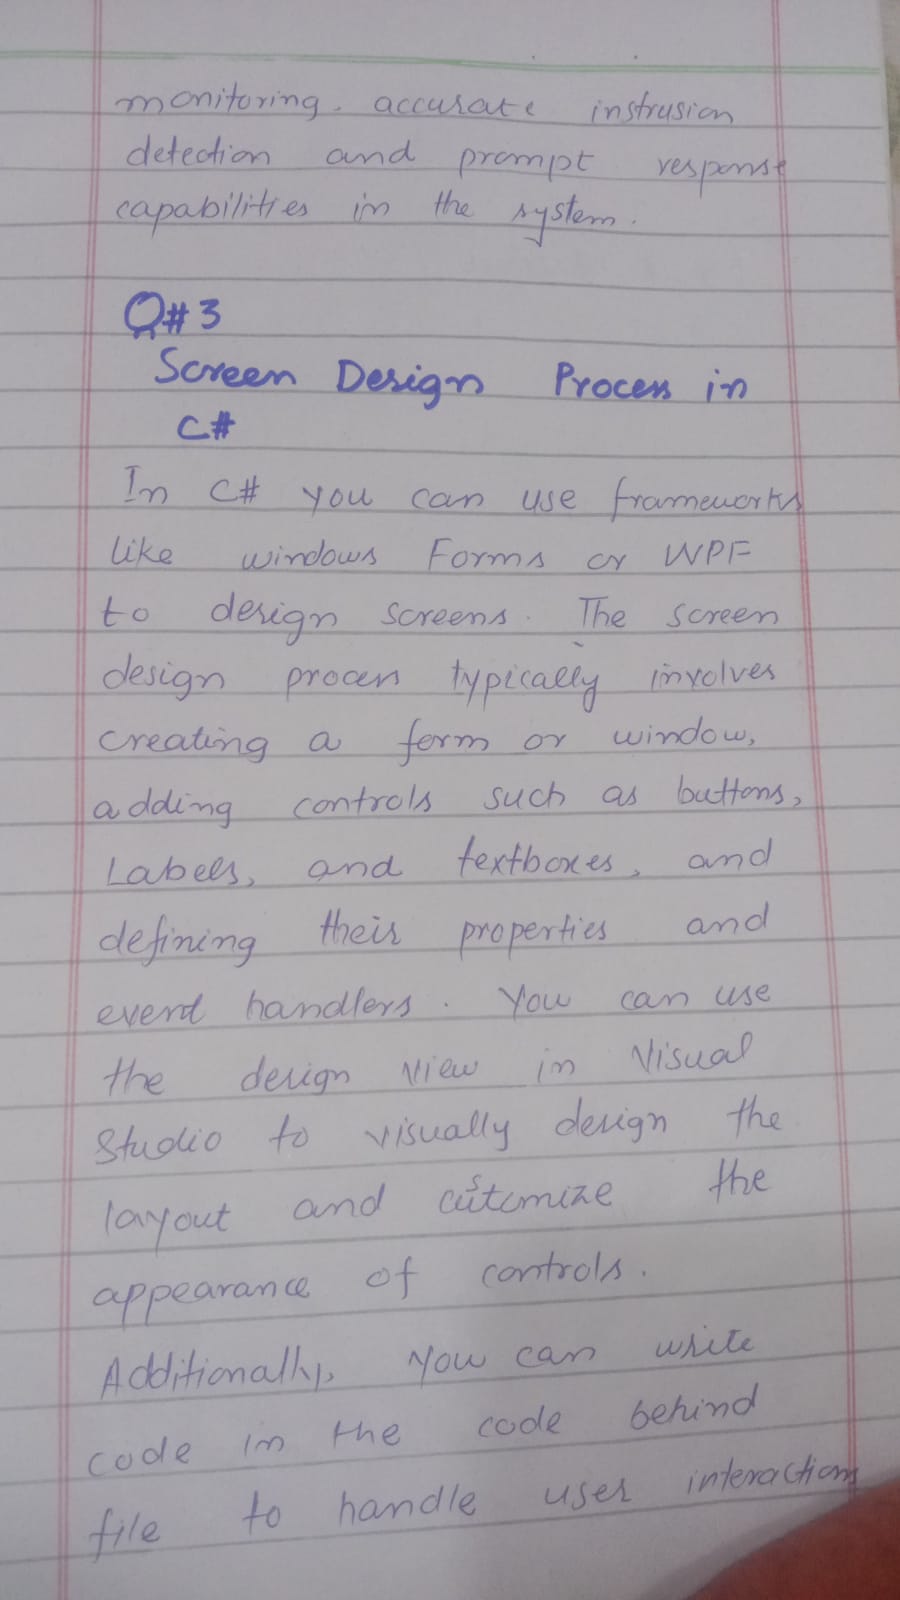 monitoring. accurate instrusion
detection and prompt response
capabilities in the system.
Q#3
Screen Design Process in
C#
In C# you can use frameworks
like windows Forms or WPF
to design screens. The screen
design process typically involves
creating a form or window,
adding controls such as buttons,
Labels, and textboxes, and
defining their properties and
event handlers. You can use
the design view in Visual
Studio to visually design the
layout and customize the
appearance of controls.
Additionally, you can write
code in the code behind
file to handle user interactions